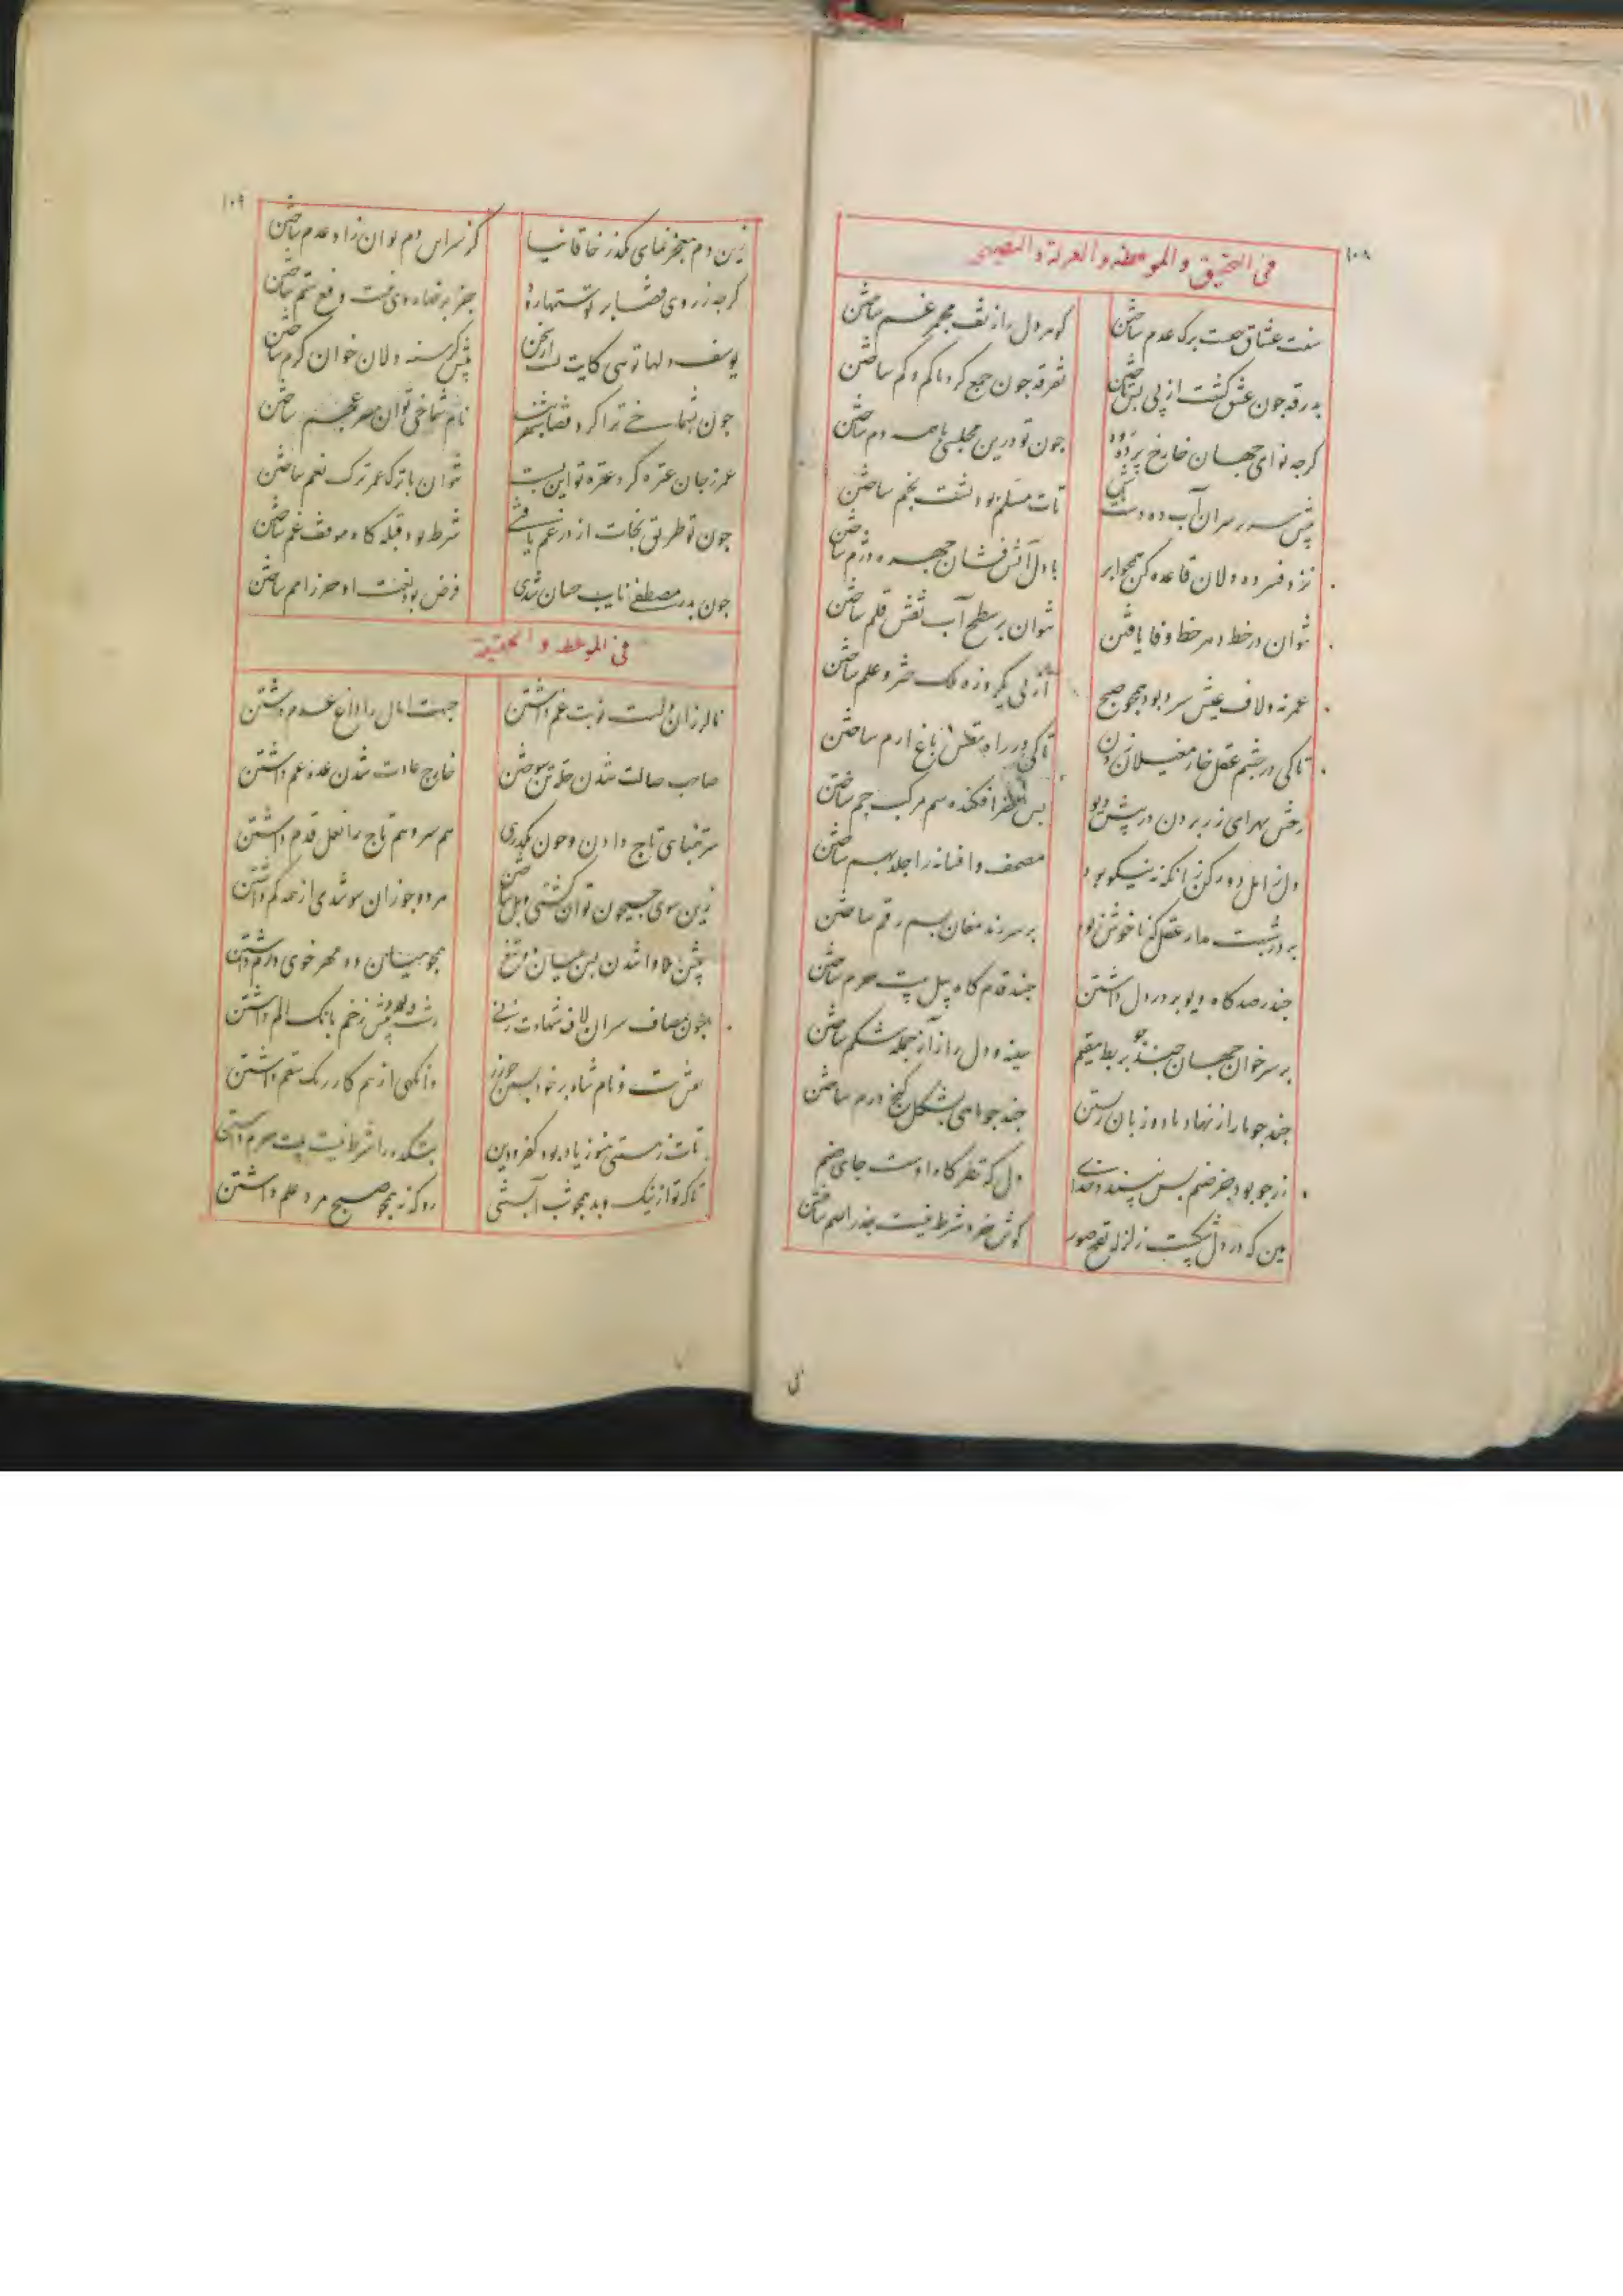 ۱۰۸
فی التحقیق والموعظه والعزلة والنصیحة
سنت عشاق چیست برک عدم ساختن
کوهر دل را ز تف مجمر غم ساختن
بدرقه چون عشق کشت از پی بس تاختن
تفرقه چون جمع کرد با کم و کم ساختن
کرجه نوای جهان خارج پرده رود
چون تو درین مجلسی با همه دم ساختن
پیش سریر سران آب ده دست باش
تات مسلم بود پشت بخم ساختن
نزد فسرده دلان قاعده کن همچو ابر
با دل آتش فشان چهره دژم ساختن
نتوان در خط دهر خط وفا یافتن
نتوان بر سطح آب نقش قلم ساختن
عمر نه و لاف عیش سرد بود همچو صبح
از پی یکروزه ملک چتر و علم ساختن
تا کی در چشم عقل خار مغیلان زدن
تا کی در راه نفس باغ ارم ساختن
رخش بهرای زر بردن در پیش دیو
پس خر افکنده سم مرکب جم ساختن
دل ز امل دور کن زانکه نه نیکو بود
مصحف و افسانه را جلد بهم ساختن
بر در تشبیت مدار عقل که ناخوش بود
بر سر زند مغان بسم رقم ساختن
چند رصد کاه دیو بر در دل داشتن
چند قدم کاه پیل بیت حرم ساختن
بر سر خوان جهان چند چو بربط مقیم
سینه و دل را ز آز جمله شکم ساختن
چند چو مار از نهاد با دو زبان زیستن
چند چو ماهی بشکل کنج درم ساختن
زر چو بود جز صنم پس نپسندد خدای
دل که نظر کاه اوست جای صنم
هین که در دل شکست زلزله نفخ صور
کوش خرد شرط نیست جذر اصم ساختن
۱۰۹
زین دم معجز نمای مکذر خاقانیا
کز سر این دم توان زاد عدم ساختن
کرجه ز روی قضا بر تو ستمها رود
جز برضا روی نیست دفع ستم ساختن
یوسف دلها توئی کایت تست از سخن
پیش کرسنه دلان خوان کرم ساختن
چون بشماخی ترا کرد قضا شهربند
نام شماخی توان مصر عجم ساختن
عمر ز جان عتره کرد عتره تو این بست
نتوان با ترک عمر ترک نعم ساختن
چون تو طریق نجات از در غم یافتی
شرط بود قبله کاه موقف غم ساختن
چون بدر مصطفی نایب حسان شدی
فرض بود نعت او حرز امم ساختن
فی الموعظه و الحقیقه
نالزان دلست نوبت غم داشتن
جبهت امال را داغ عدم داشتن
صاحب حالت شدن حله تن سوختن
خارج عادت شدن عده غم داشتن
سر بتمنای تاج دادن و چون بکذری
هم سر و هم تاج را نعل قدم داشتن
زین سوی جیحون توان کشتی و پل ساختن
مرده جوزان سو شدی از همه کم داشتن
پیش بلا وا شدن پس میان دو تیغ
همچو میان دو مهر خوی دژم داشتن
چون بمصاف سران لاف شهادت زنی
زشت بود پیش زخم بانک الم داشتن
نقش بت و نام شاه بر خود بستن چو زر
وانکهی از بیم کار رنک سقم داشتن
تات ز هستی هنوز یاد بود کفر و دین
بتکده را شرط نیست بیت حرم داشتن
تا که تو از نیک و بد همچو شب آبستنی
رو که نه همچو صبح مرد علم داشتن